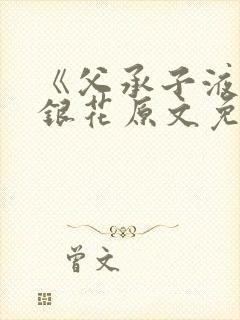 《父承子液
銀花原文免
曾文